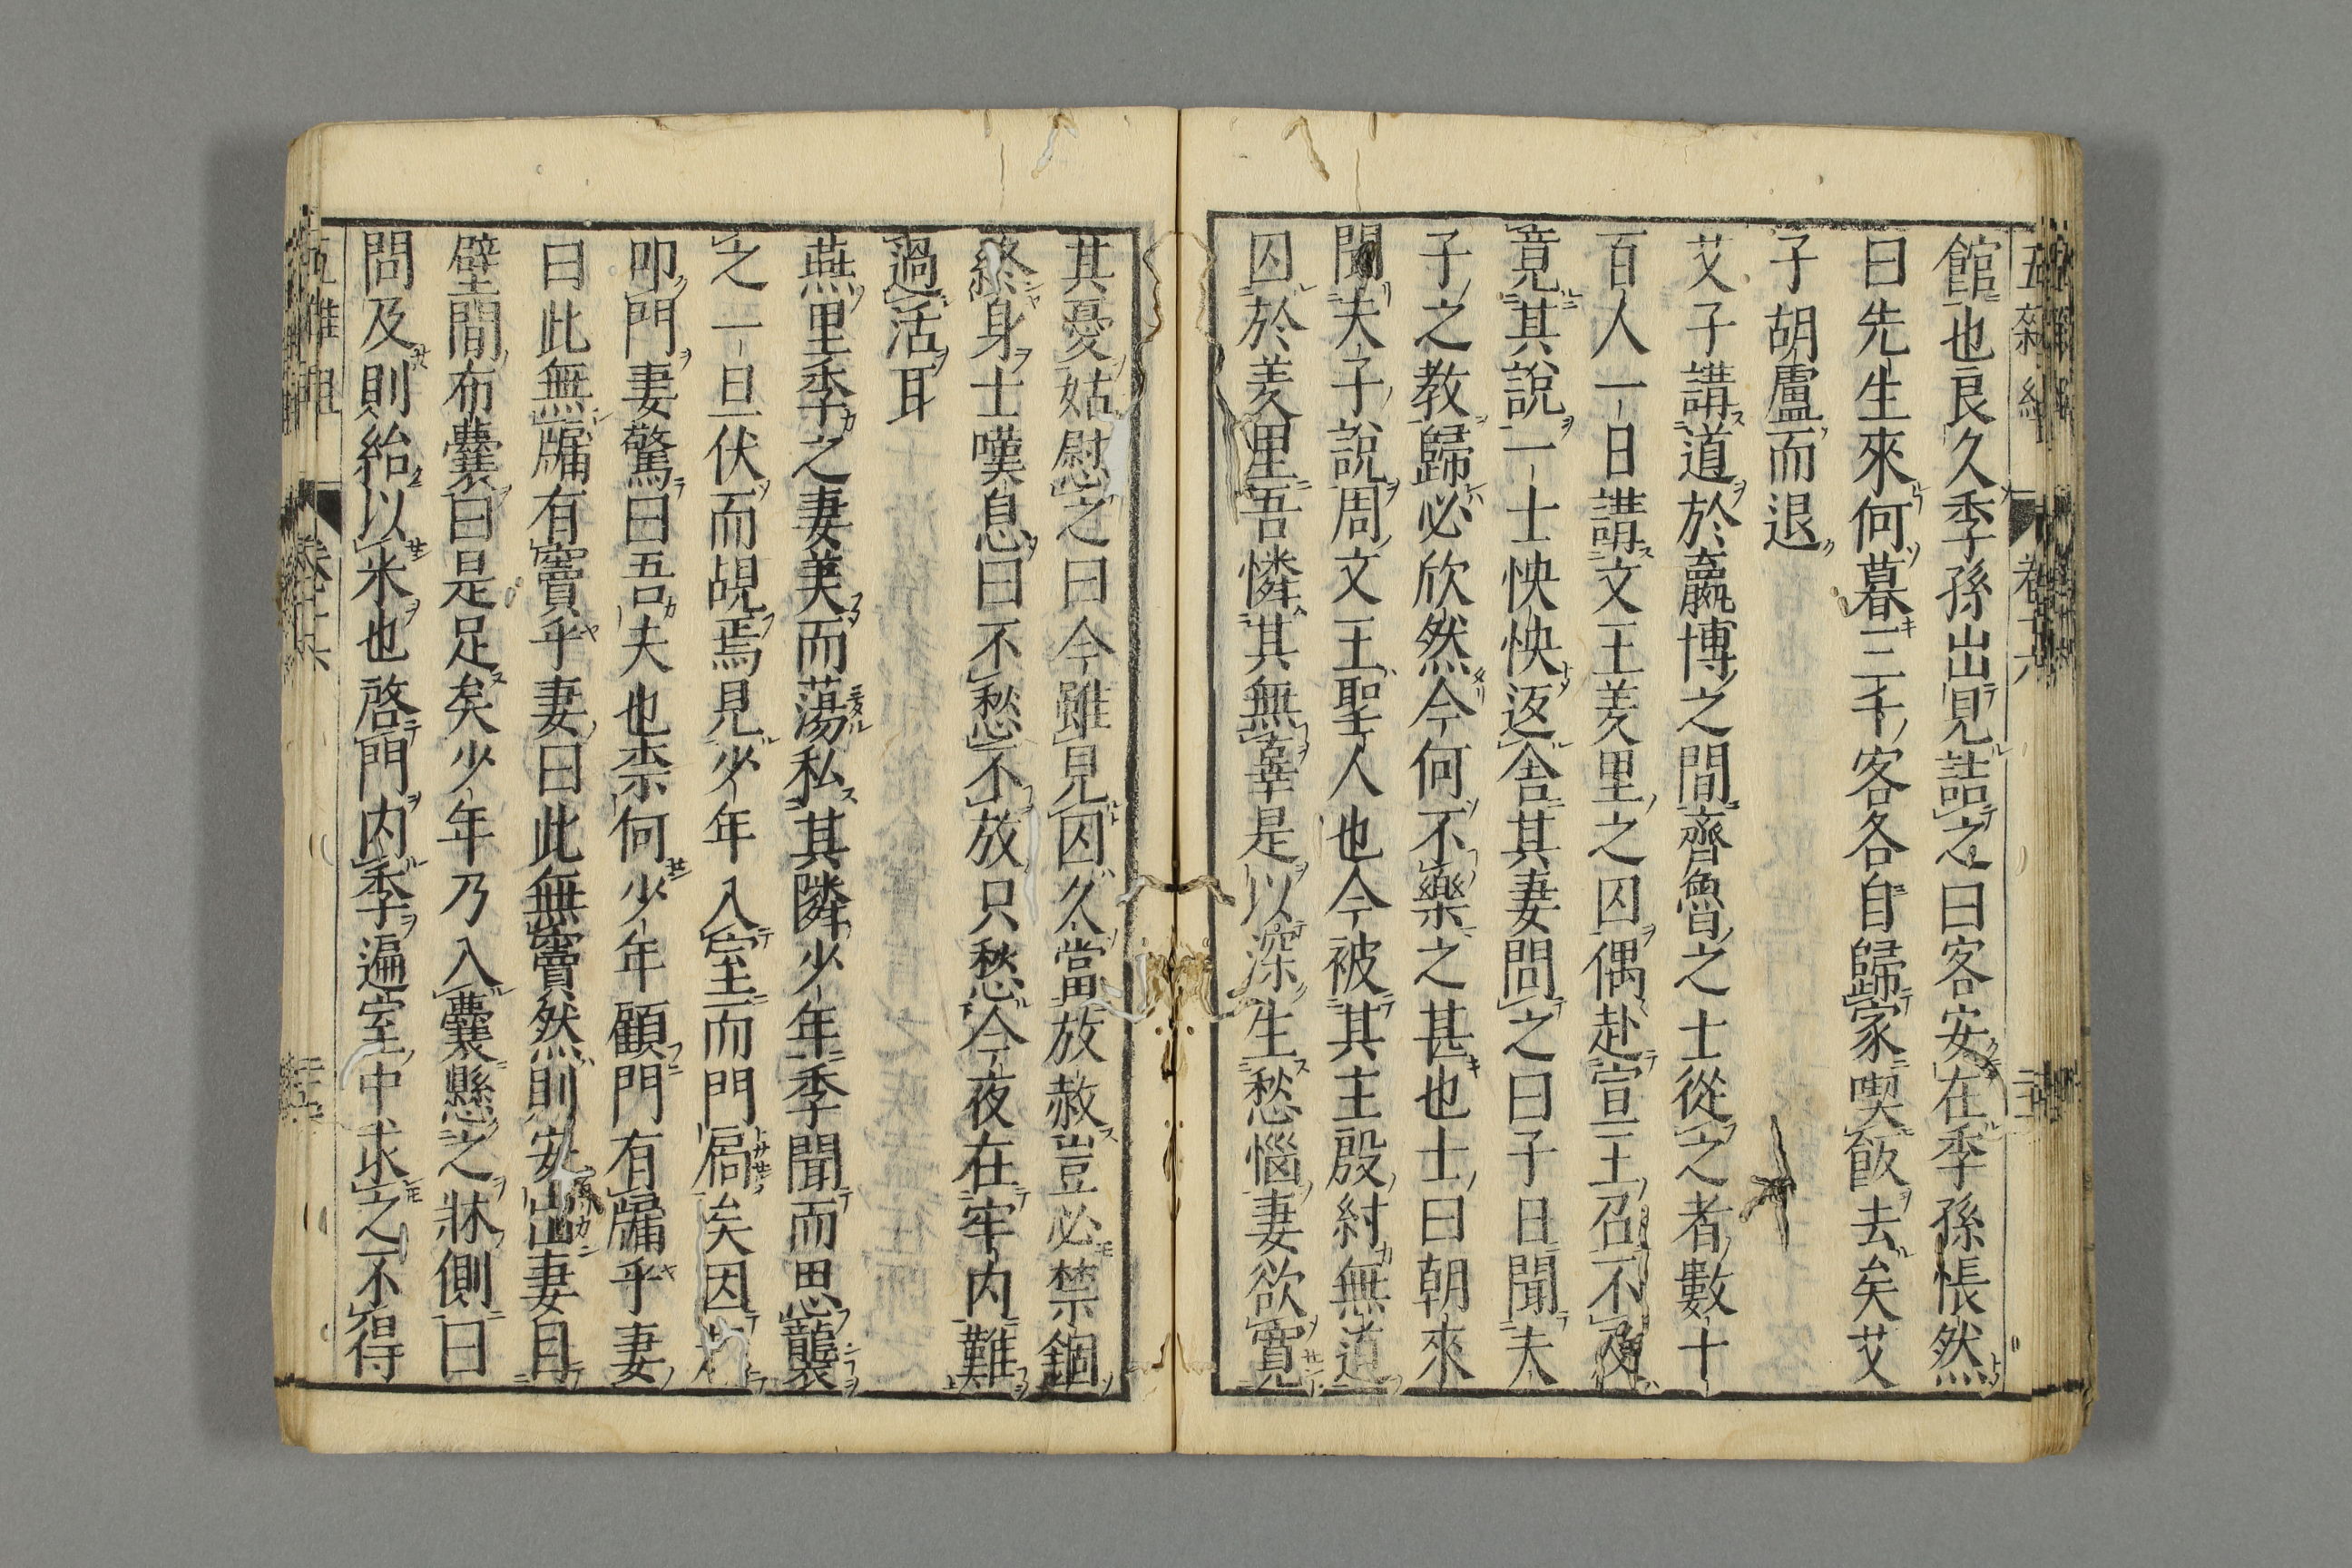 館也良久季孫出見詰之曰客安在季孫悵然
曰先生來何暮三千客各自歸家喫飯去矣艾
子胡盧而退
艾子講道於嬴博之間齊魯之士從之者數十
百人一日講文王羑里之囚偶赴宣王召不及
竟其說一士怏怏返舍其妻問之曰子日聞夫
子之教歸必欣然今何不樂之甚也士曰朝來
聞夫子說周文王聖人也今被其主殷紂無道
囚於羑里吾憐其無辜是以深生愁惱妻欲寬
其憂姑慰之曰今雖見囚久當放赦豈必禁錮
終身士嘆息曰不愁不放只愁今夜在牢內難
過活耳
燕里季之妻美而蕩私其隣少年季聞而思襲
之一旦伏而覘焉見少年入室而門扃矣因
叩門妻驚曰吾夫也柰何少年顧門有牖乎妻
曰此無牖有竇乎妻曰此無竇然則安出妻目
壁間布囊曰是足矣少年乃入囊懸之牀側曰
問及則紿以米也啓門內季遍室中求之不得